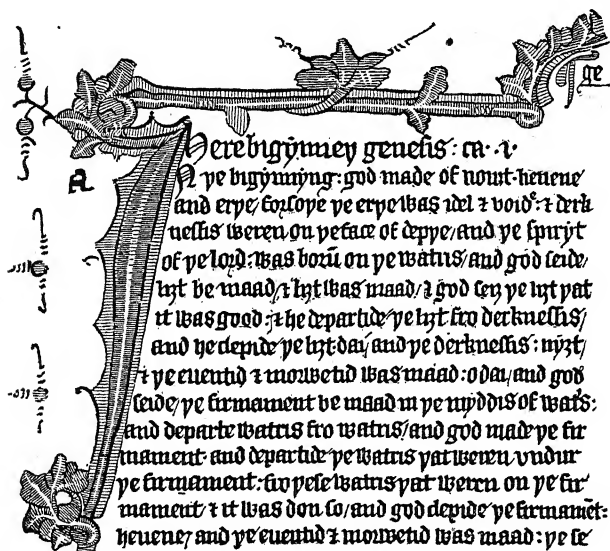 ge
Here bigynney genesis : ca · i ·
a
N ye bigynnyng: god made of nouıt·heuene
and erye/ forsoye ye erye was idel ⁊ voidᵉ: ⁊ derk
nessis weren on ye face of depye/ and ye spiryt
of ye lord: was borū on ye watris/ and god seide/
liȝt be maad/ ⁊ liȝt was maad/ ⁊ god seȝ ye liȝt yat
it was good: ⁊ he departide ye liȝt fro derknessis/
and he clepide ye liȝt·dai/ and ye derknessis: nyȝt/
⁊ ye euentid ⁊ morwetid was maad: o dai/ and god
seide/ ye firmament be maad in ye myddis of watˢ:
and departe watris fro watris/ and god made ye fir
mament· and departide ye watris yat weren vndur
ye firmament: fro yese watris yat weren on ye fir
mament/ ⁊ it was don so/ and god clepide ye firmamēt:
heuene/ and ye euentid ⁊ morwetid was maad: ye se